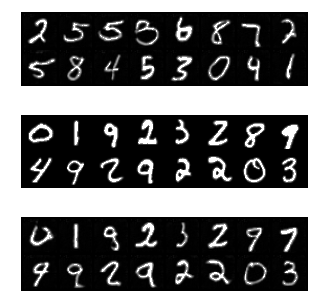 2 5 5 3 6 8 7 2
5 8 4 5 3 0 4 1
0 1 9 2 3 2 8 9
4 9 2 9 2 2 0 3
0 1 9 2 3 2 9 7
9 9 2 9 2 2 0 3